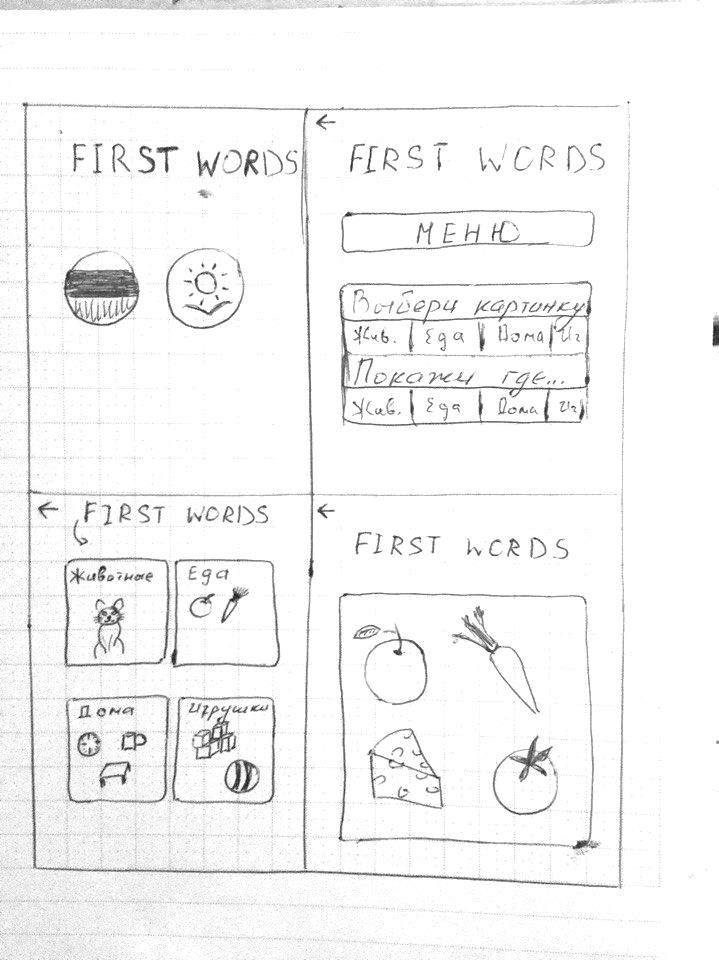 FIRST WORDS
FIRST WORDS
МЕНЮ
Выбери картинку
Жив. Еда Дома Иг
Покажи где...
Жив. Еда Дома Иг
FIRST WORDS
Животные Еда
Дома Игрушки
FIRST WORDS